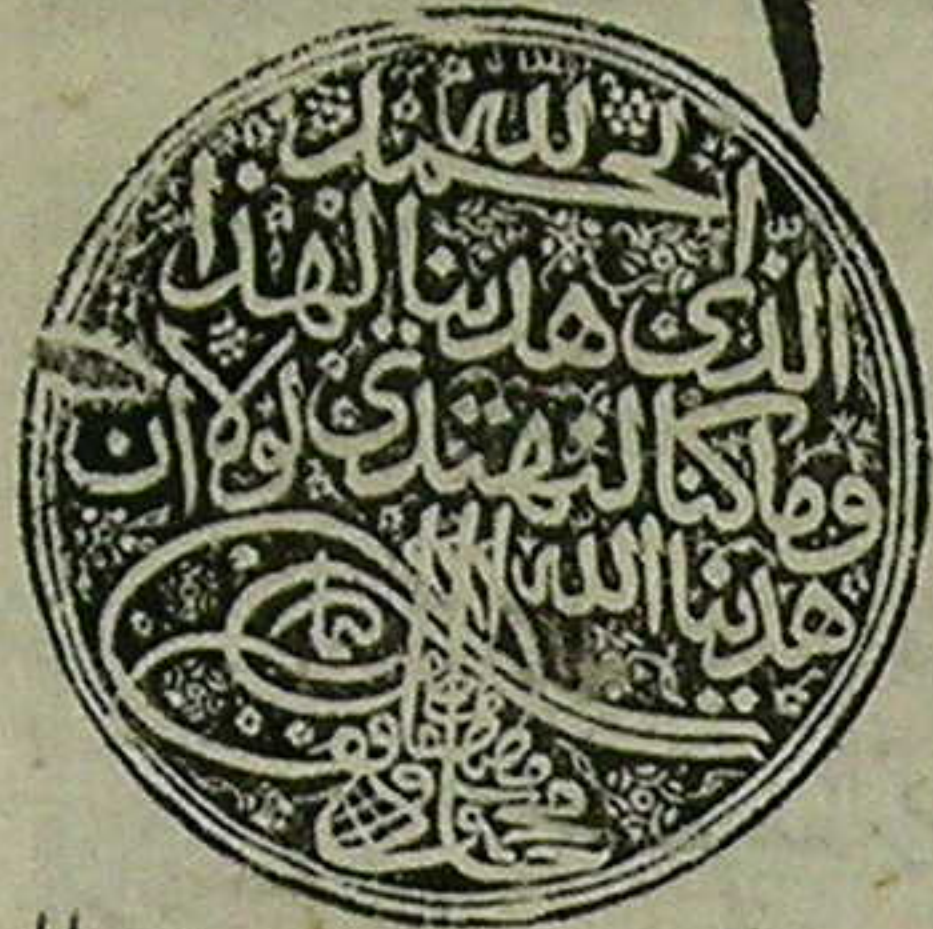 الحمد لله
الذى هدينا لهذا
وما كنا لنهتدى لولا ان
هدينا الله
محمود